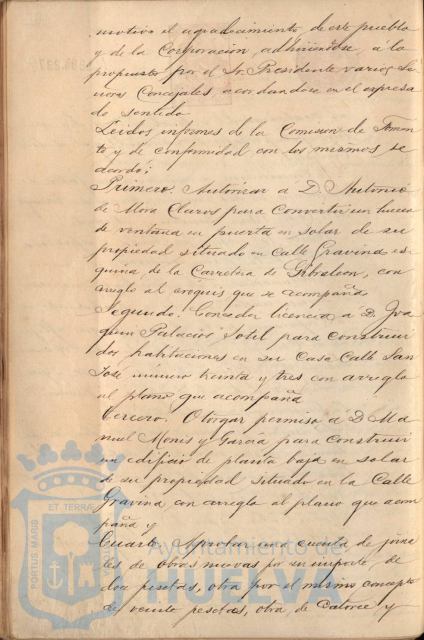 motivo el agradecimiento de este pueblo
y de la Corporacion, adhiriendose a la
propuesta por el Sr. Presidente varios Se
ñores Concejales, acordandose en el expresa
do sentido.
Leidos informes de la Comision de Fomen
to y de conformidad con los mismos se
acordó;
Primero. Autorizar á D. Antonio
de Mora Claros para convertir un hueco
de ventana en puerta en solar de su
propiedad situado en calle Gravina es
quina de la Carretera de Gibraleon, con
arreglo al croquis que se acompaña
Segundo. Conceder licencia a D. Joa
quin Palacios Sotel para construir
dos habitaciones en su Casa Calle San
José número treinta y tres con arreglo
al plano que acompaña
Tercero. Otorgar permiso á D. Ma
nuel Monis y Garcia para construir
un edificio de planta baja en solar
de su propiedad situado en la Calle
Gravina con arreglo al plano que acom
paña y
Cuarto. Aprobar una cuenta de jorna
les de obras nuevas por un importe de
doce pesetas, otra por el mismo concepto
de veinte pesetas, otra de catorce y
PORTUS MARIS ET TERRAE
Ayuntamiento de
HUELVA